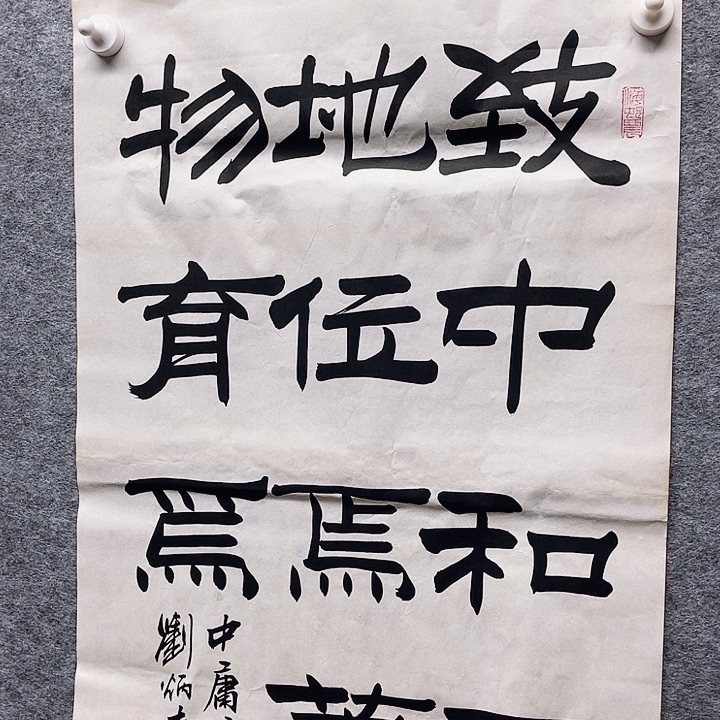 致中和
地位焉萬
物育焉
中庸
劉炳